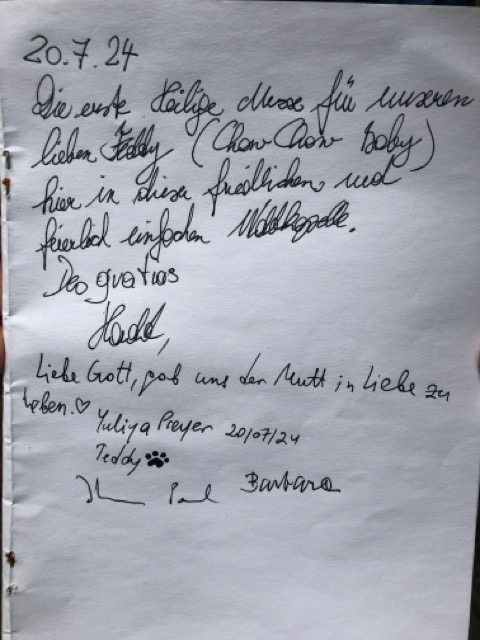 20.7.24
Die erste Heilige Messe für unseren
lieben Teddy (Chow Chow Baby)
hier in dieser friedlichen und
feierlich einfachen Waldkapelle.
Deo gratias
Liebe Gott, gab uns den Mutt in Liebe zu
leben.♡
Yuliya Preyer 20/07/24
Teddy 🐾
Paul Barbara